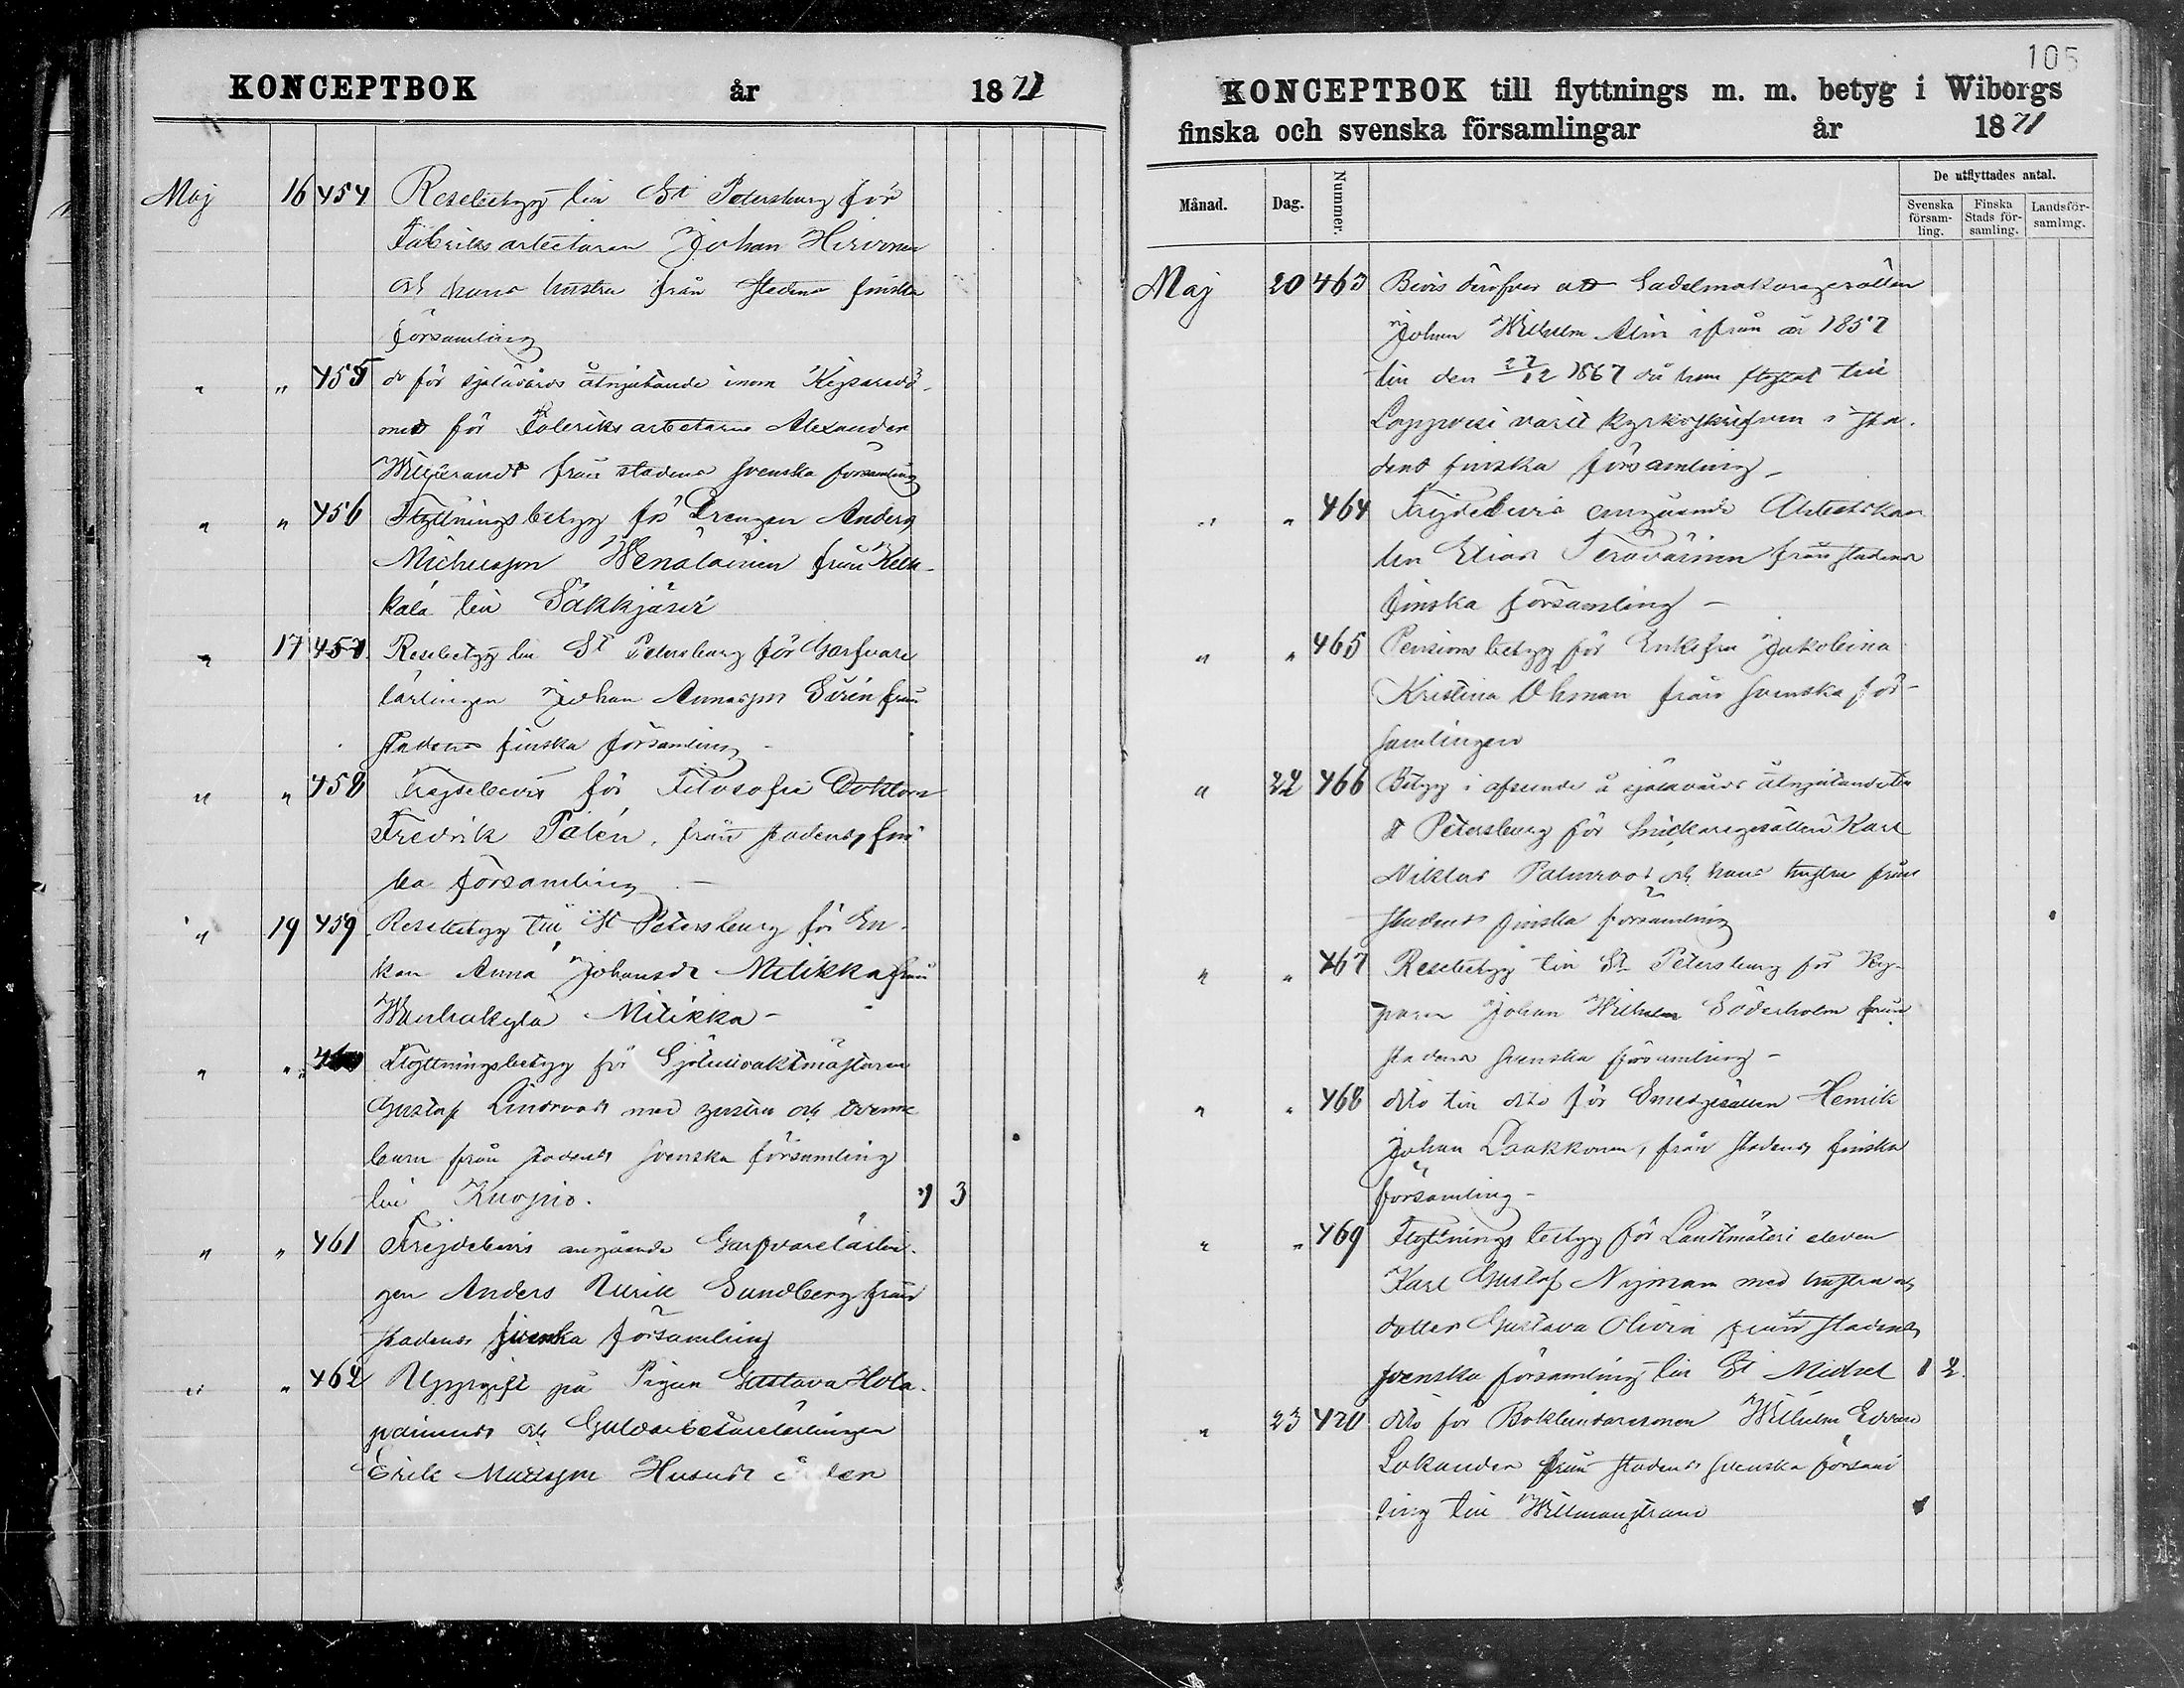 KONCEPTBOK år 1871
Maj 16 454 Resebetyg till St Petersburg för
Fabriksarbetaren Johan Hirvonen
och hans hustru från stadens finska
församling
" " 455 do för själavårds åtnjutande inom Kejsaredö-
met för Fabriksarbetaren Alexander
från stadens svenska församling
" " 456 Flyttningsbetyg för Drengen Anders
Michelsson Wenäläinen från
kälä till Säkkjärvi
" 17 457 Resebetyg till St Petersburg för Garfvare
lärlingen Johan Sirén från
stadens finska församling
" " 458 Frejdebevis för Filosofie Doktorn
Fredrik Palén, från stadens fins
ka församling -
" 19 459 Resebetyg till St Petersburg för En-
kan Anna Johansdr Mitikka från
Wanhakylä Mitikka -
" " 460 Flyttningsbetyg för
Gustaf Lindroos med hustru och tvenne
barn från stadens svenska församling
till Kuopio. 1 3
" " 461 Frejdebevis angående Garfvarelärlin-
gen Anders Ulrik Sundberg från
stadens svenska församling
" " 462 Uppgift på Pigan Gustava Hola-
painens och Guldarbetarelärlingen
Erik Mattsson Husus ålder
105
KONCEPTBOK till flyttnings m. m. betyg i Wiborgs
finska och svenska församlingar år 1871
Månad. Dag. Nummer. De utflyttades antal.
Svenska församling. Finska Stads församling. Landsförsamling.
Maj 20 463 Bevis deröfver att Sadelmakaregesällen
Johan Wilhelm Alin ifrån år 1857
till den 27/12 1867 då han flyttat till
Loppvesi varit kyrkoskrifven i sta-
dens finska församling -
" " 464 Frejdebevis angående Arbetskar
len Elias Teräväinen från stadens
finska församling -
" " 465 Pensionsbetyg för Enkefru Jakobina
Kristina Öhman från svenska för-
samlingen
" 22 466 Betyg i afseende å själavårds åtnjutande i
St Petersburg för Snickaregesällen Karl
Niklas Palmroos och hans hustru från
stadens finska församling
" " 467 Resebetyg till St Petersburg för Ky-
paren Johan Wilhelm Söderholm från
stadens svenska församling -
" " 468 dito till dito för Smedgesällen Henrik
Johan Laakkonen, från stadens finska
församling -
" " 469 Flyttningsbetyg för Landtmäteri eleven
Karl Gustaf Nyman med hustru och
dotter Gustava Olivia från stadens
svenska församling till St Michel 1 2.
" 23 470 dito för Wilhelm Edvard
Lokander från stadens svenska försam
ling till Willmanstrand 1